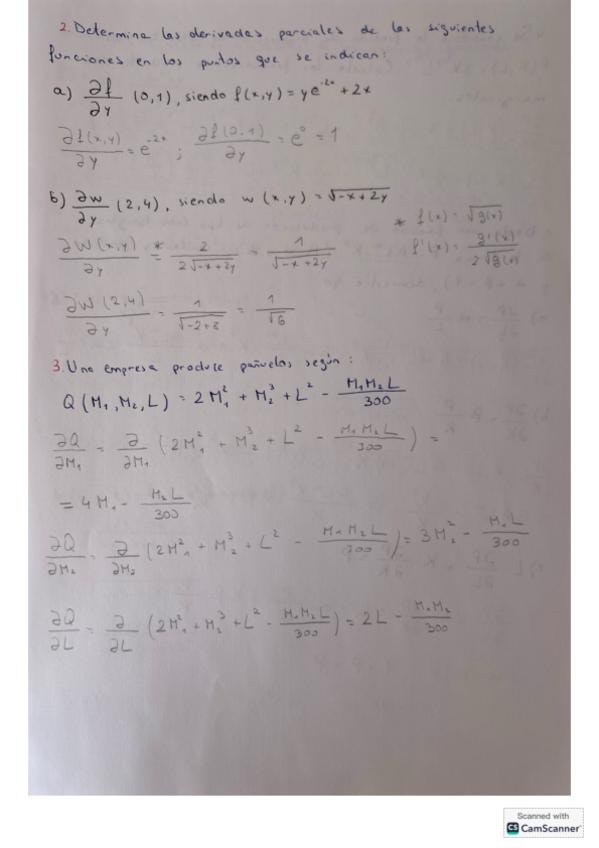 2. Determina las derivadas parciales de las siguientes
funciones en los puntos que se indican:
a) ∂f/∂y (0,1), siendo f(x,y) = ye^-2x + 2x
∂f(x,y)/∂y = e^-2x ; ∂f(0,1)/∂y = e^0 = 1
b) ∂w/∂y (2,4), siendo w(x,y) = √-x+2y
* f(x) = √g(x)
∂w(x,y)/∂y *= 2/2√-x+2y = 1/√-x+2y
f'(x) = g'(x)/2√g(x)
∂w(2,4)/∂y = 1/√-2+8 = 1/√6
3. Una empresa produce pañuelos según:
Q(M₁,M₂,L) = 2M₁² + M₂³ + L² - M₁M₂L/300
∂Q/∂M₁ = ∂/∂M₁ (2M₁² + M₂³ + L² - M₁M₂L/300) =
= 4M₁ - M₂L/300
∂Q/∂M₂ = ∂/∂M₂ (2M₁² + M₂³ + L² - M₁M₂L/300) = 3M₂² - M₁L/300
∂Q/∂L = ∂/∂L (2M₁² + M₂³ + L² - M₁M₂L/300) = 2L - M₁M₂/300
Scanned with
CS CamScanner